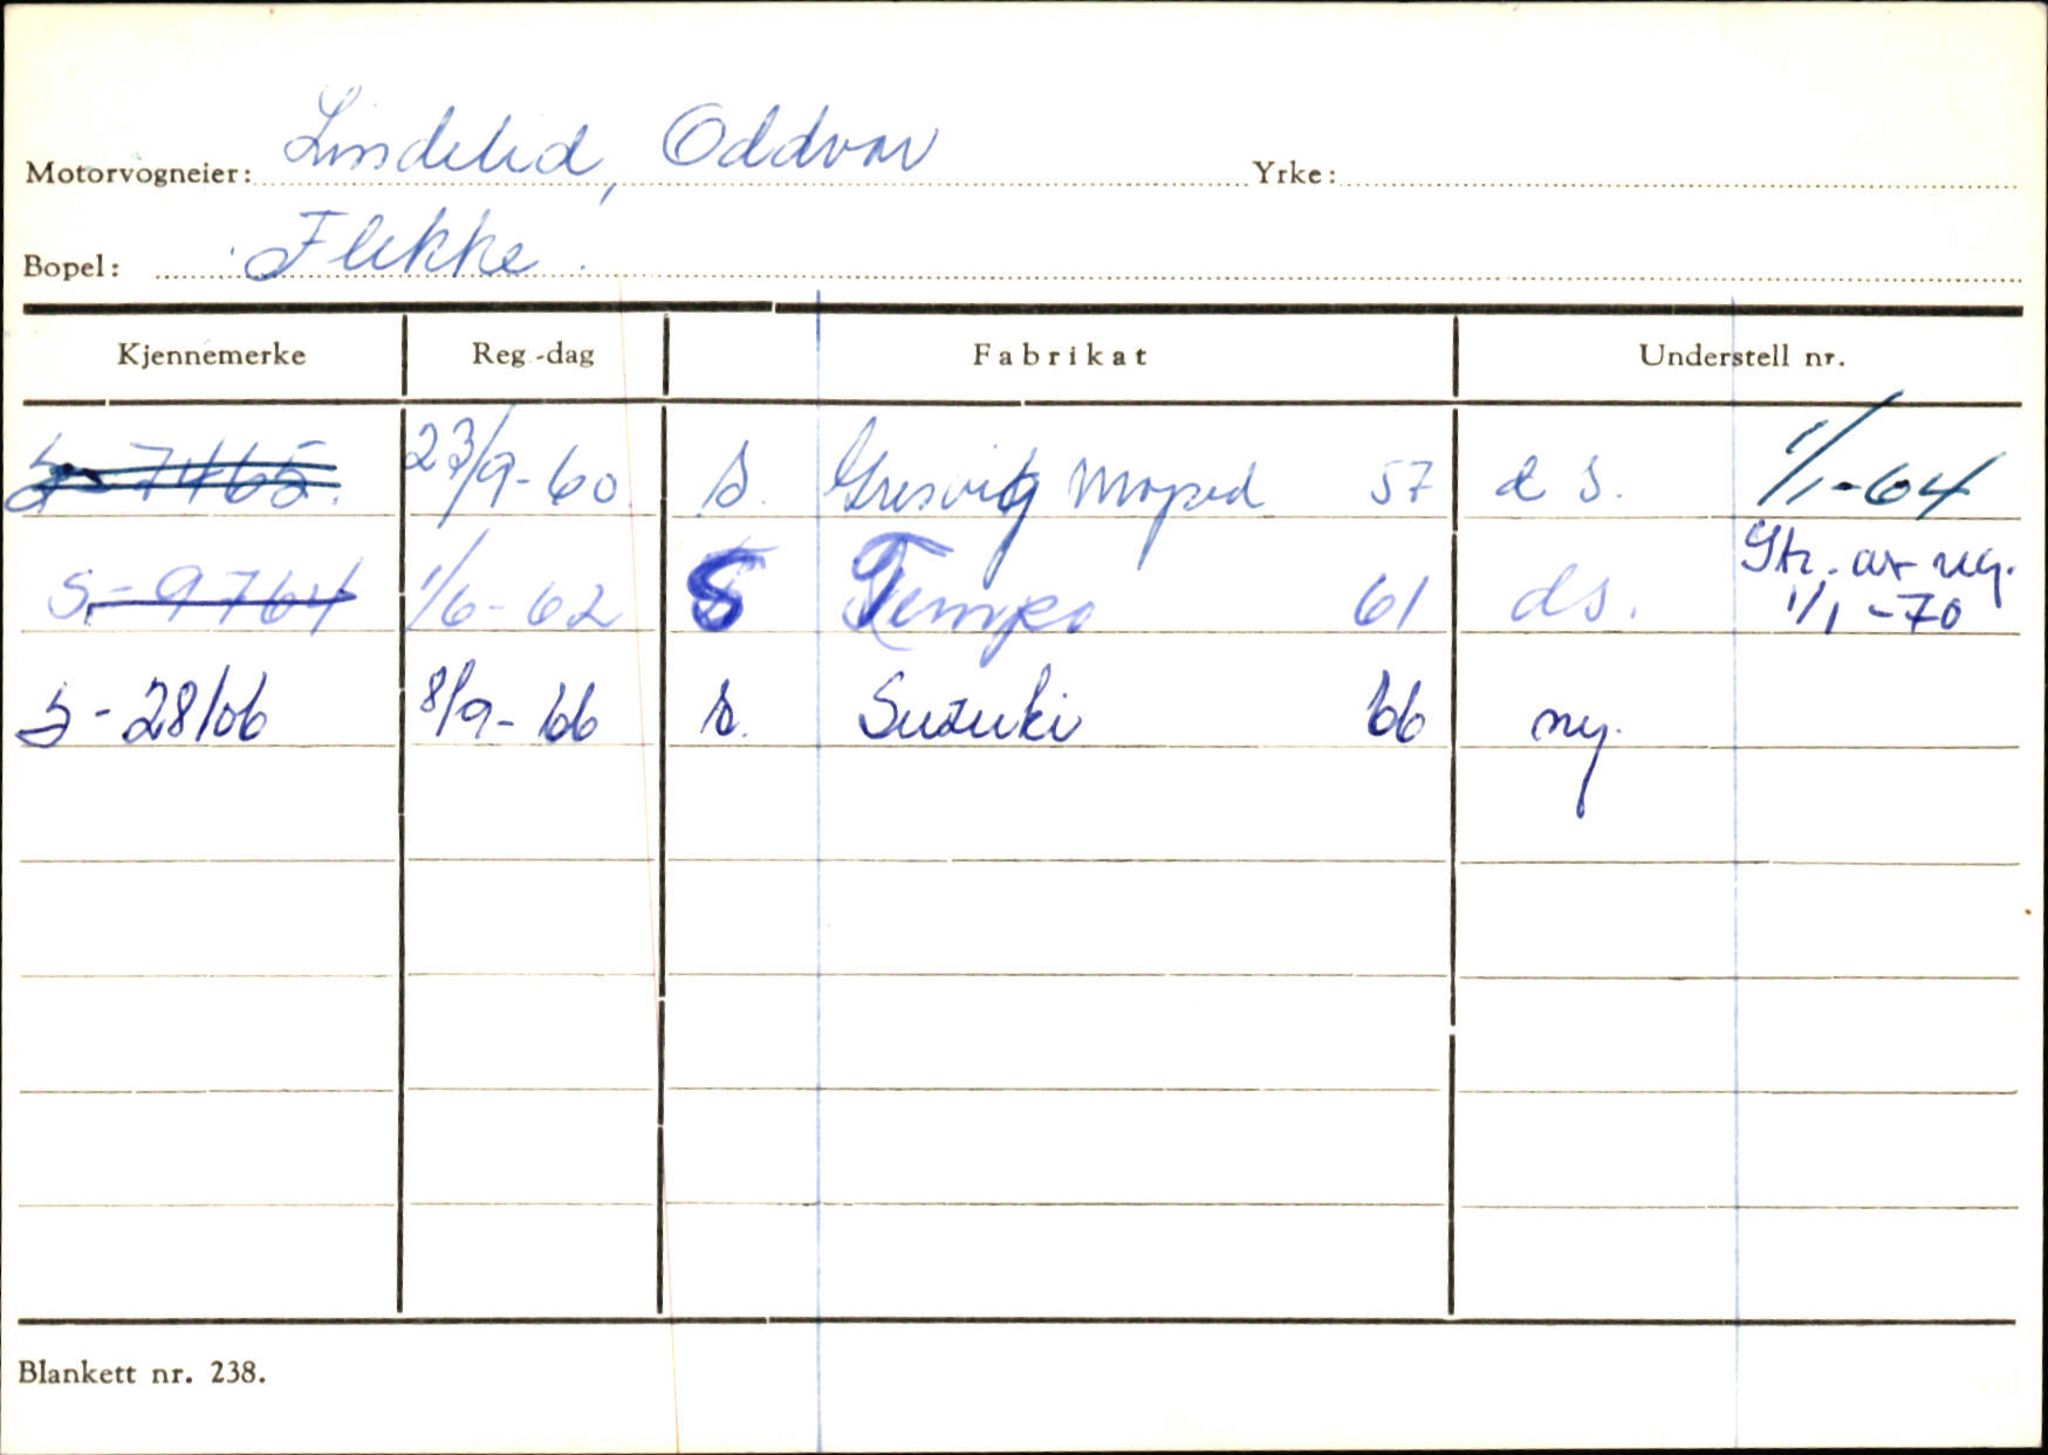 Motorvogneier: Lindelid, Oddvar Yrke:
Bopel: Flekke.
Kjennemerke Reg.-dag Fabrikat Understell nr.
S-7465. 23/9-60. s. Gresvig Moped 57 d s. 1/1-64
S-9764 1/6-62 S Tempo 61 ds. Str. av reg. 1/1-70
S-28106 8/9-66 s. Suzuki 66 ny.
Blankett nr. 238.